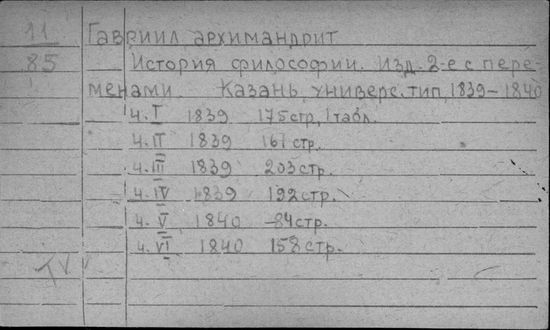 11 Гавриил, архимандрит
85 История философии. Изд. 2-е с пере-
менами. Казань, универс. тип, 1839-1840
ч. I 1839 175 стр, 1 табл.
ч. II 1839 167 стр.
ч. III 1839 203 стр.
ч. IV 1839 192 стр.
ч. V 1840 84 стр.
ч. VI 1840 158 стр.